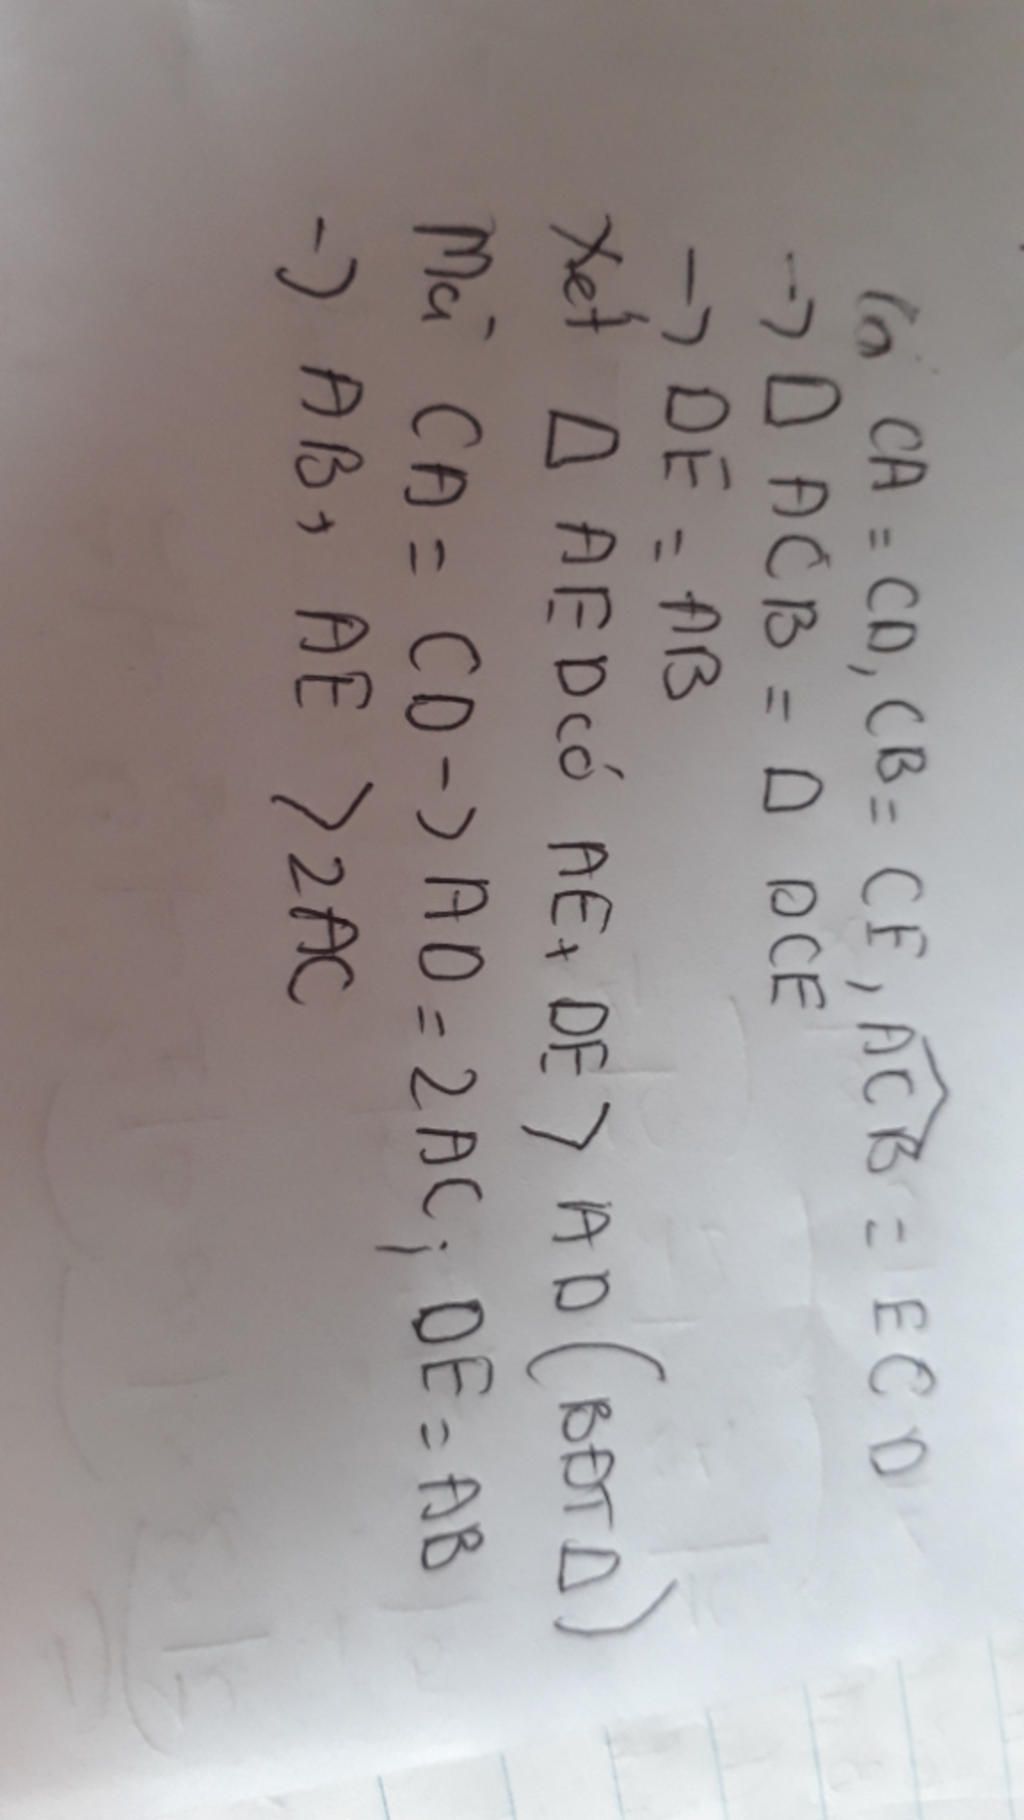 Có CA = CD, CB = CE, ACB = ECD
-> Δ ACB = Δ DCE
-> DE = AB
Xét Δ AED có AE + DE > AD (BĐT Δ)
Mà CA = CD -> AD = 2AC; DE = AB
-> AB + AE > 2AC